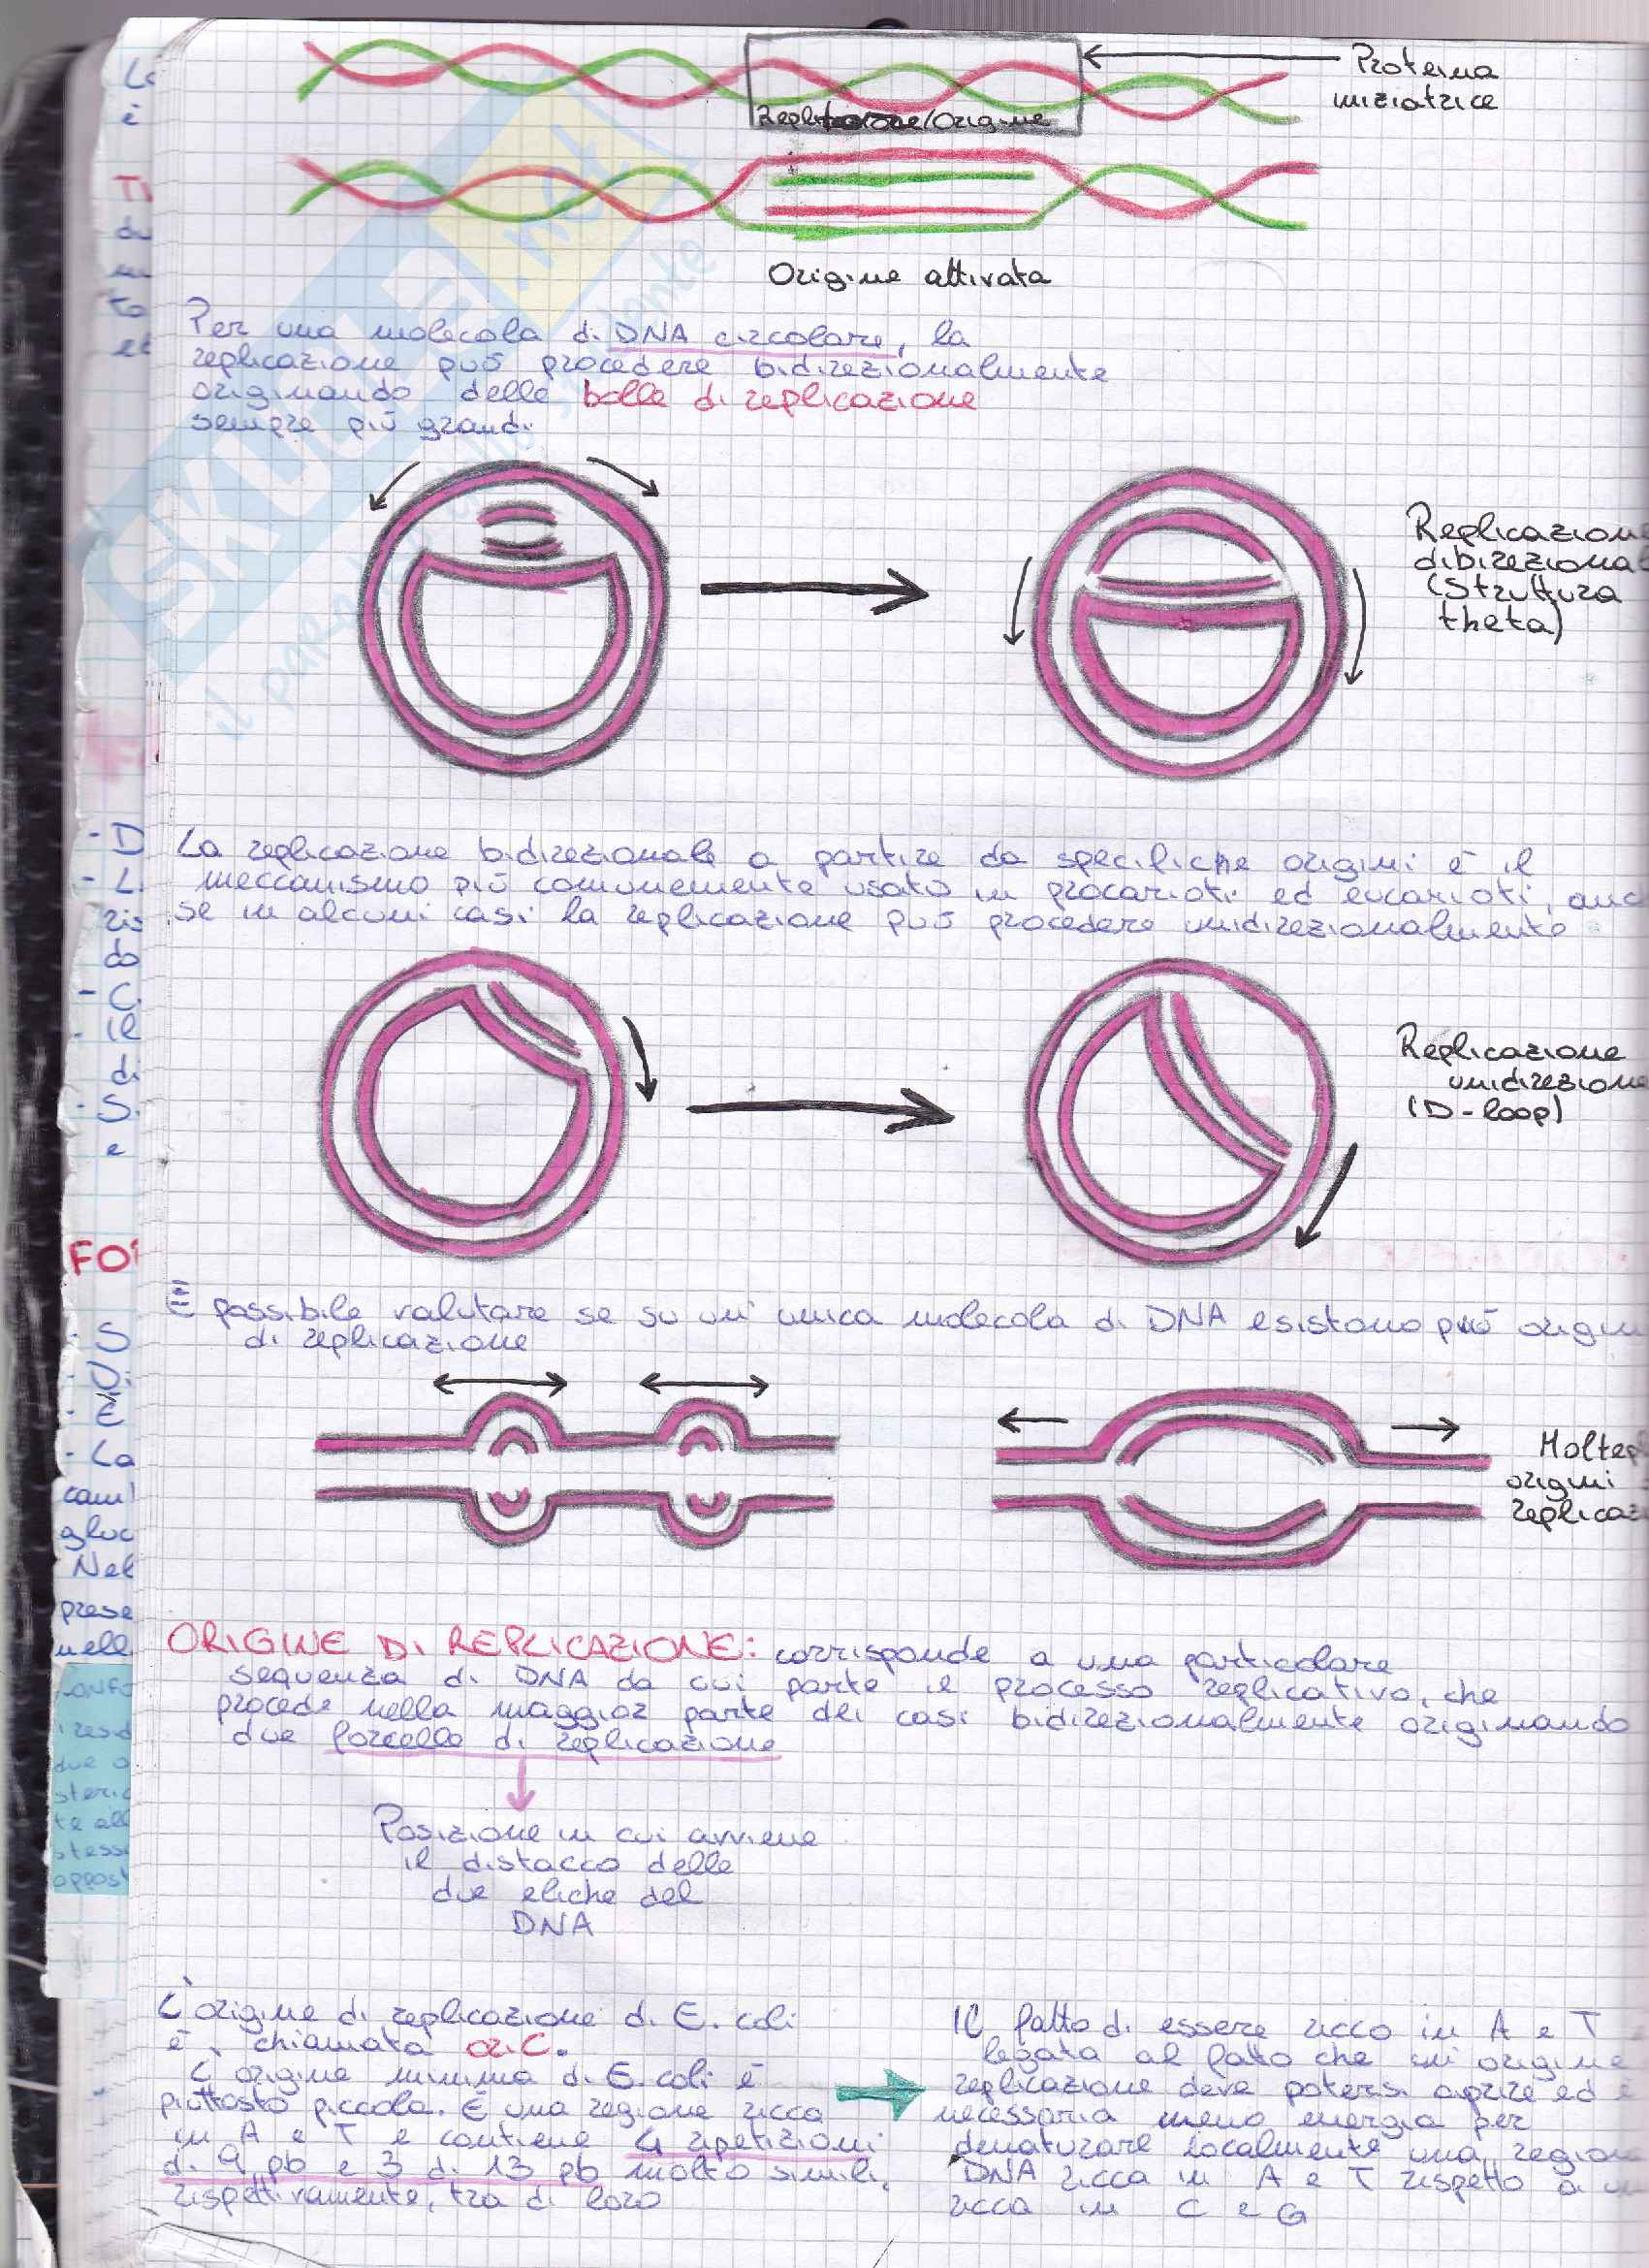 Proteina
iniziatrice
Replicatore/Origine
Origine attivata
Per una molecola di DNA circolare, la
replicazione può procedere bidirezionalmente
originando delle bolle di replicazione
sempre più grandi.
Replicazion
dibirezional
(Struttura
theta)
La replicazione bidirezionale a partire da specifiche origini è il
meccanismo più comunemente usato in procarioti ed eucarioti, anc
se in alcuni casi la replicazione può procedere unidirezionalmente
Replicazione
unidirezione
(D-loop)
È possibile valutare se su un' unica molecola di DNA esistono più origin
di replicazione
Moltep
origini
replicaz
ORIGINE DI REPLICAZIONE: corrisponde a una particolare
sequenza di DNA da cui parte il processo replicativo, che
procede nella maggior parte dei casi bidirezionalmente originando
due forcelle di replicazione
Posizione in cui avviene
il distacco delle
due eliche del
DNA
L'origine di replicazione di E. coli
è chiamata oriC.
L'origine minima di E. coli è
piuttosto piccola. È una regione ricca
in A e T e contiene 4 ripetizioni
di 9 pb e 3 di 13 pb molto simili,
rispettivamente, tra di loro
Il fatto di essere ricco in A e T
legata al fatto che un origine
replicazione deve potersi aprire ed è
necessaria meno energia per
denaturare localmente una region
DNA ricca in A e T rispetto a un
ricca in C e G
FO
cam
gluc
Nel
prese
nell
SKUOLA.net